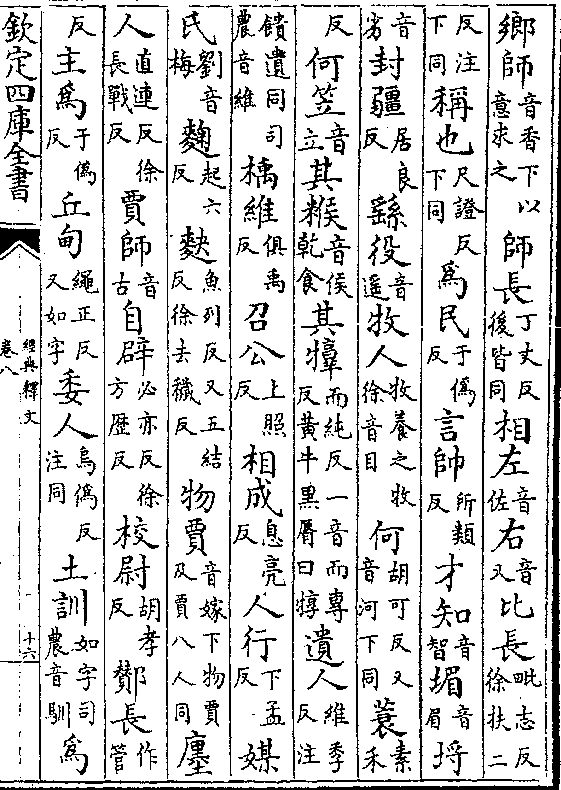 鄉師音香下以意求之師長丁丈反後皆同相左音佐右音又比長毗志反徐扶二
反注下同稱也尺證反下同爲民于僞反言帥所類反才知音智堳音眉埒
音劣封疆居良反繇役音遥牧人牧養之牧徐音目何胡可反又音河下同蓑素禾
反何笠音立其糇音侯乾食其犉而純反一音而專反黄牛黑脣曰犉遺人維季反注
饋遺同司農音維楀維俱禹反召公上照反相成息亮反人行下孟反媒
氏劉音梅麴起六反魚列反又五結反徐去穢反物賈音嫁下物賈及賈八人同廛
人直連反徐長戰反賈師音古自辟必亦反徐方歷反校尉胡孝反酇長作管
反主爲于僞反丘甸繩正反又如字委人烏僞反注同土訓如字司農音馴爲
欽定四庫全書
經典釋文
卷八
十六